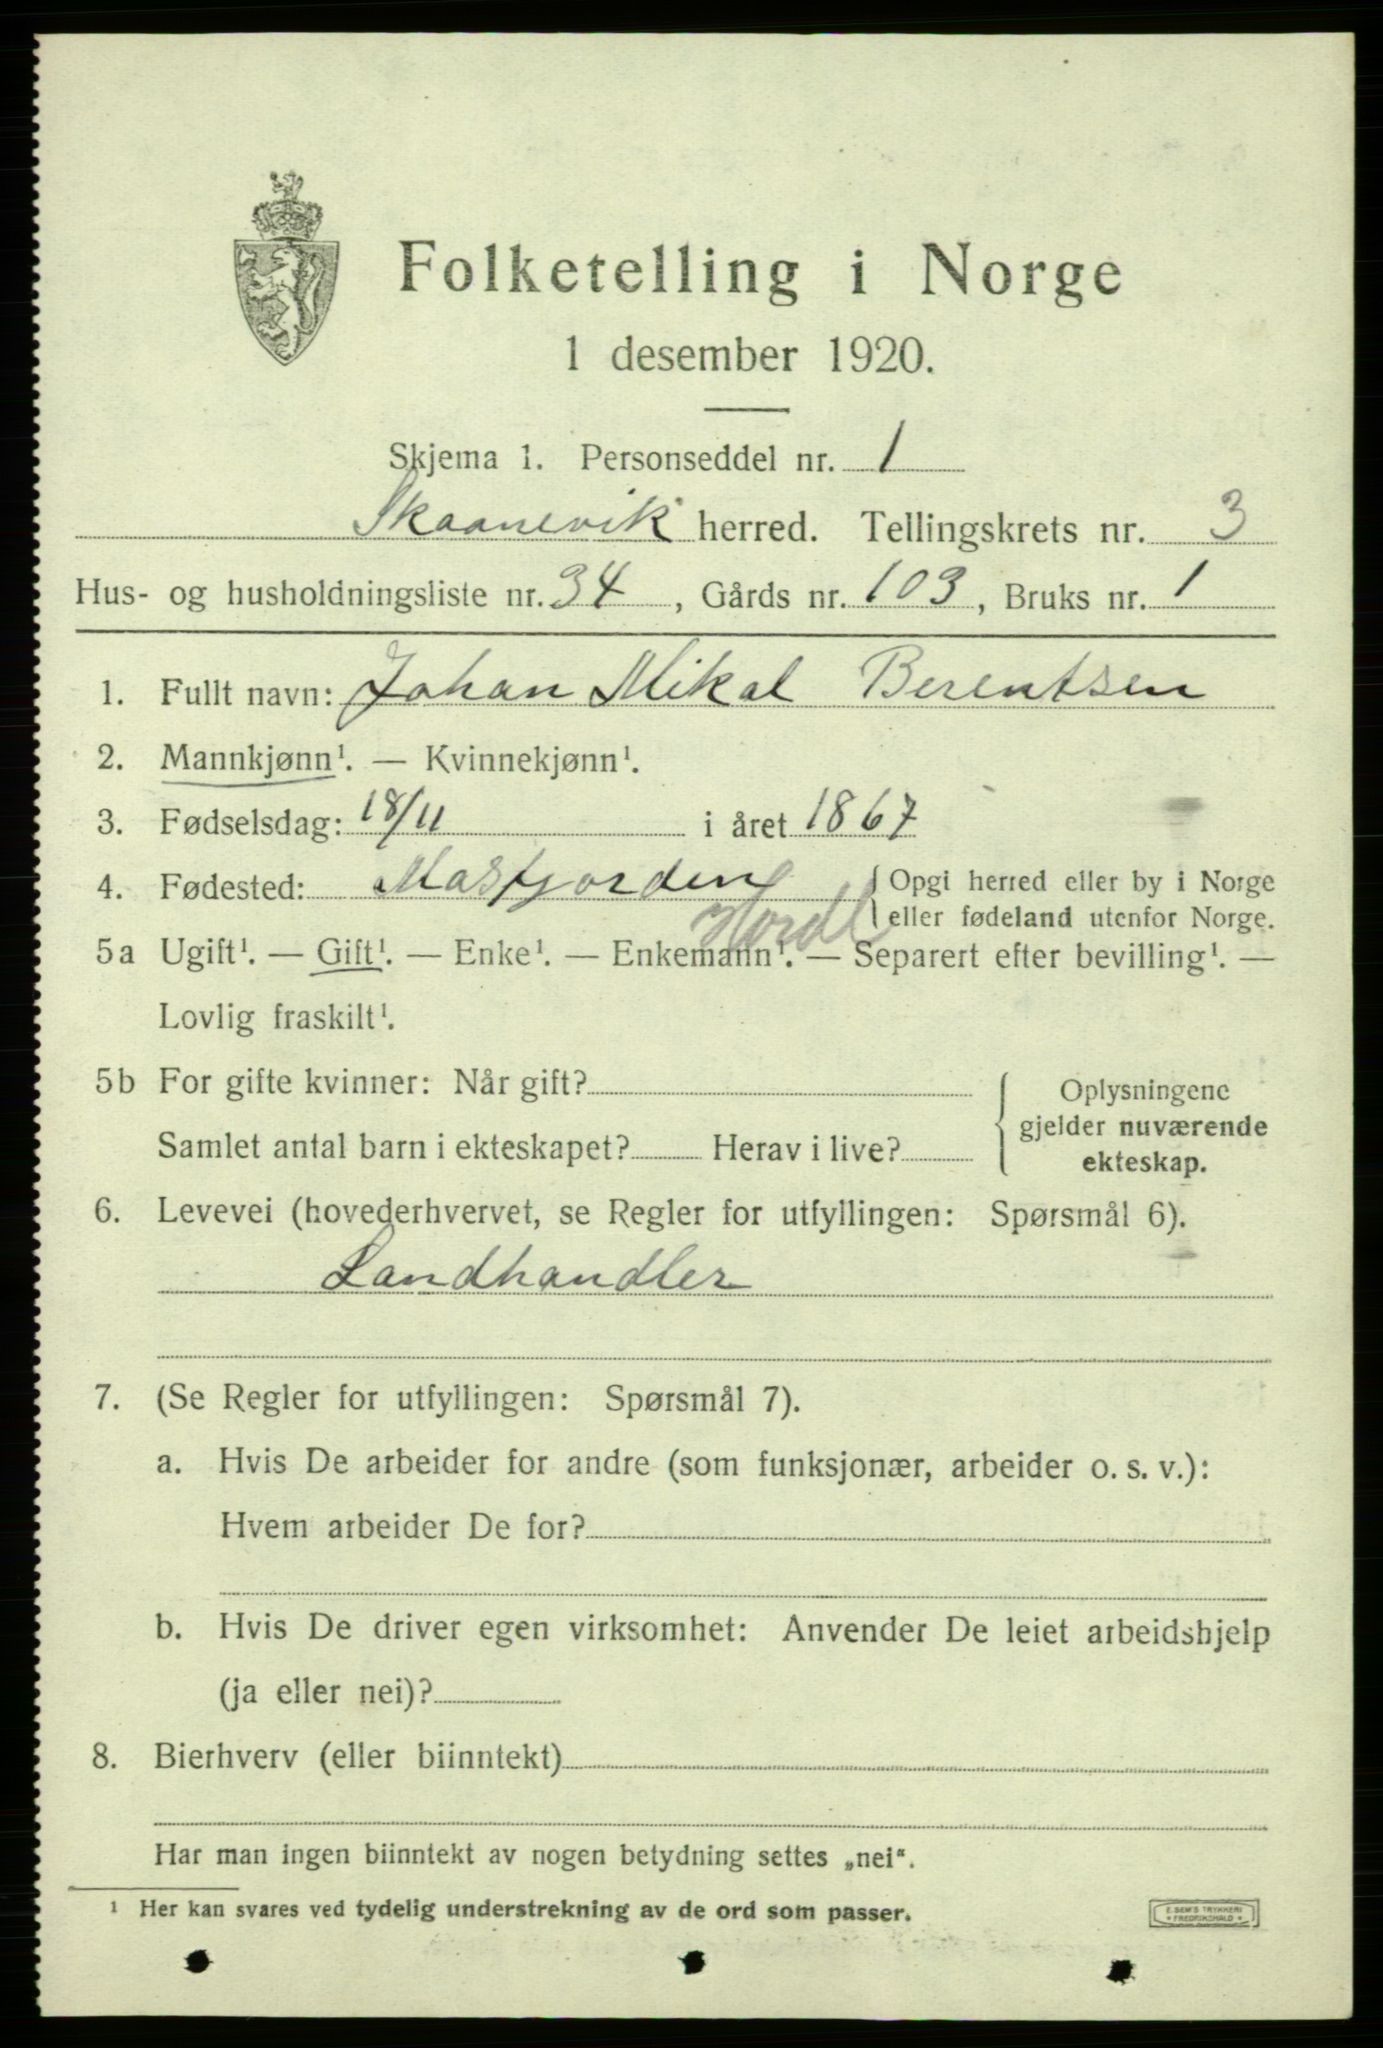 Folketelling i Norge
1 desember 1920.
Skjema 1. Personseddel nr. 1
Skaanevik herred. Tellingskrets nr. 3
Hus- og husholdningsliste nr. 34, Gårds nr. 103, Bruks nr. 1
1. Fullt navn: Johan Mikal Berentsen
2. Mannkjønn¹. — Kvinnekjønn¹.
3. Fødselsdag: 18/11 i året 1867
4. Fødested: Masfjorden { Opgi herred eller by i Norge
Hordl eller fødeland utenfor Norge.
5a Ugift¹. — Gift¹. — Enke¹. — Enkemann¹. — Separert efter bevilling¹. —
Lovlig fraskilt¹.
5b For gifte kvinner: Når gift? { Oplysningene
gjelder nuværende
Samlet antal barn i ekteskapet? Herav i live? ekteskap.
6. Levevei (hovederhvervet, se Regler for utfyllingen: Spørsmål 6).
Landhandler
7. (Se Regler for utfyllingen: Spørsmål 7).
a. Hvis De arbeider for andre (som funksjonær, arbeider o. s. v.):
Hvem arbeider De for?
b. Hvis De driver egen virksomhet: Anvender De leiet arbeidshjelp
(ja eller nei)?
8. Bierhverv (eller biinntekt)
Har man ingen biinntekt av nogen betydning settes „nei“.
¹ Her kan svares ved tydelig understrekning av de ord som passer.
E. SEM'S TRYKKERI
* FREDRIKSHALD *